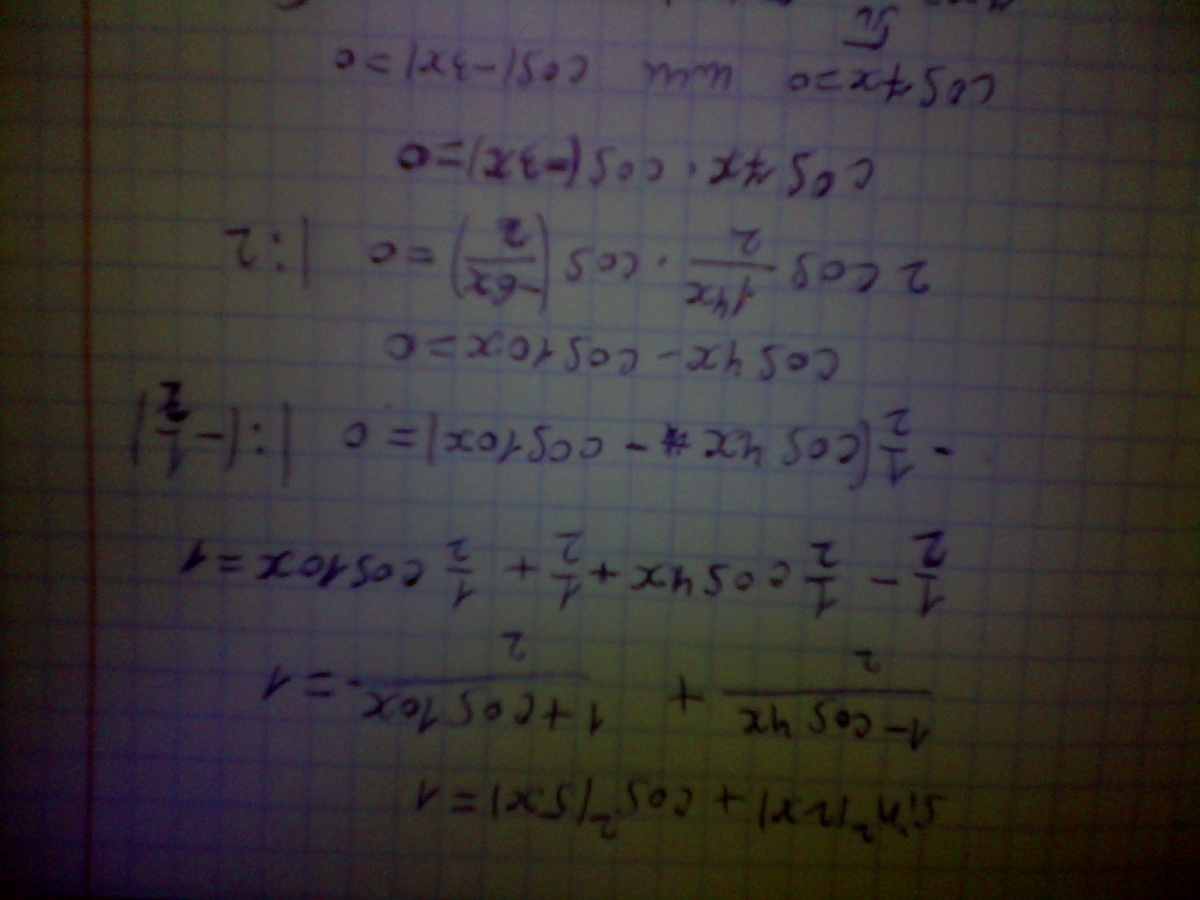 sin²(2x) + cos²(5x) = 1
(1 - cos 4x)/2 + (1 + cos 10x)/2 = 1
1/2 - 1/2 cos 4x + 1/2 + 1/2 cos 10x = 1
- 1/2 (cos 4x - cos 10x) = 0 | : (-1/2)
cos 4x - cos 10x = 0
2 cos 14x/2 · cos (-6x/2) = 0 | : 2
cos 7x · cos (-3x) = 0
cos 7x = 0 или cos(-3x) = 0